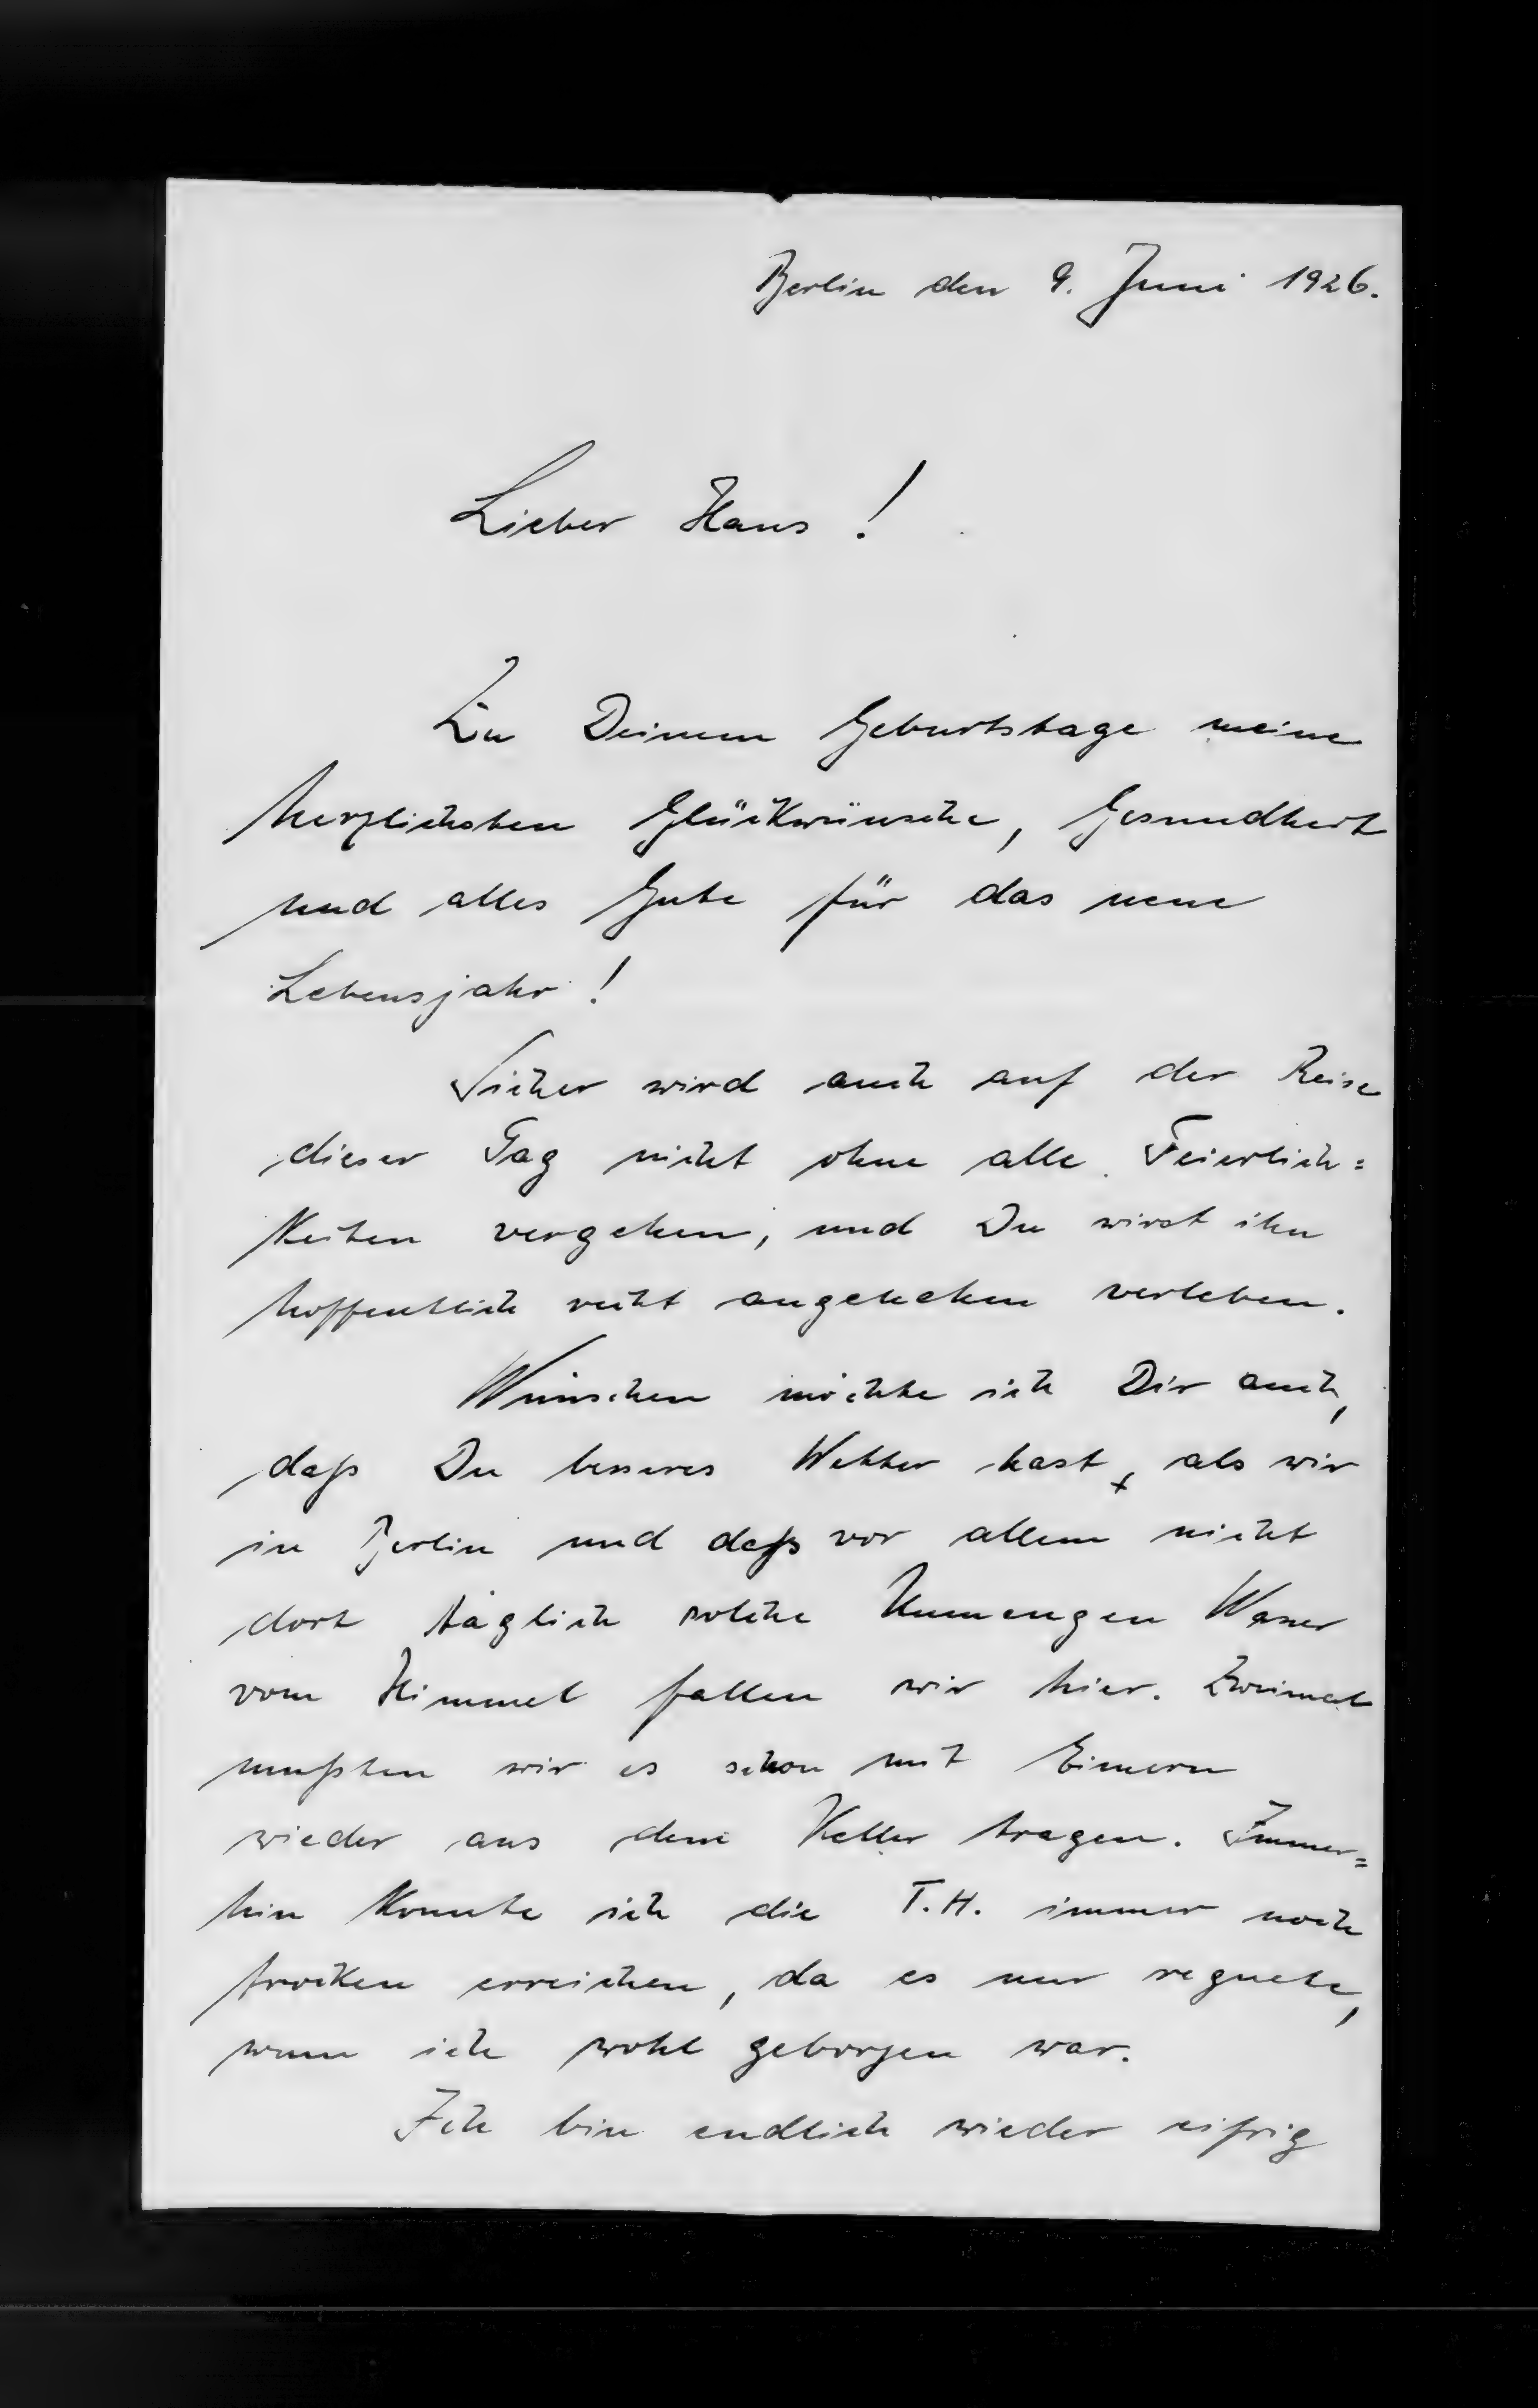 Berlin den 9. Juni 1926.
Lieber Hans!
Zu Deinem Geburtstage meine
herzlichsten Glückwünsche, Gesundheit
und alles Gute für das neue
Lebensjahr!
Sicher wird auch auf der Reise
dieser Tag nicht ohne alle Feierlich=
keiten vergehen, und Du wirst ihn
hoffentlich recht angenehm verleben.
Wünschen möchte ich Dir auch,
daß Du besseres Wetter hast, als wir
in Berlin und daß vor allem nicht
dort täglich solche Unmengen Wasser
vom Himmel fallen wir hier. Zweimal
mußten wir es schon mit Eimern
wieder aus dem Keller tragen. Immer=
hin konnte ich die T.H. immer noch
trocken erreichen, da es nur regnete,
wenn ich wohl geborgen war.
Ich bin endlich wieder eifrig